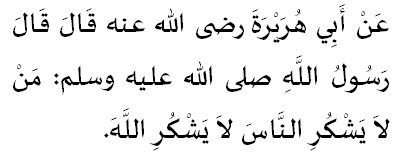 عَنْ أَبِي هُرَيْرَةَ رضى الله عنه قَالَ قَالَ
رَسُولُ اللَّهِ صلى الله عليه وسلم: مَنْ
لاَ يَشْكُرِ النَّاسَ لاَ يَشْكُرِ اللَّهَ.